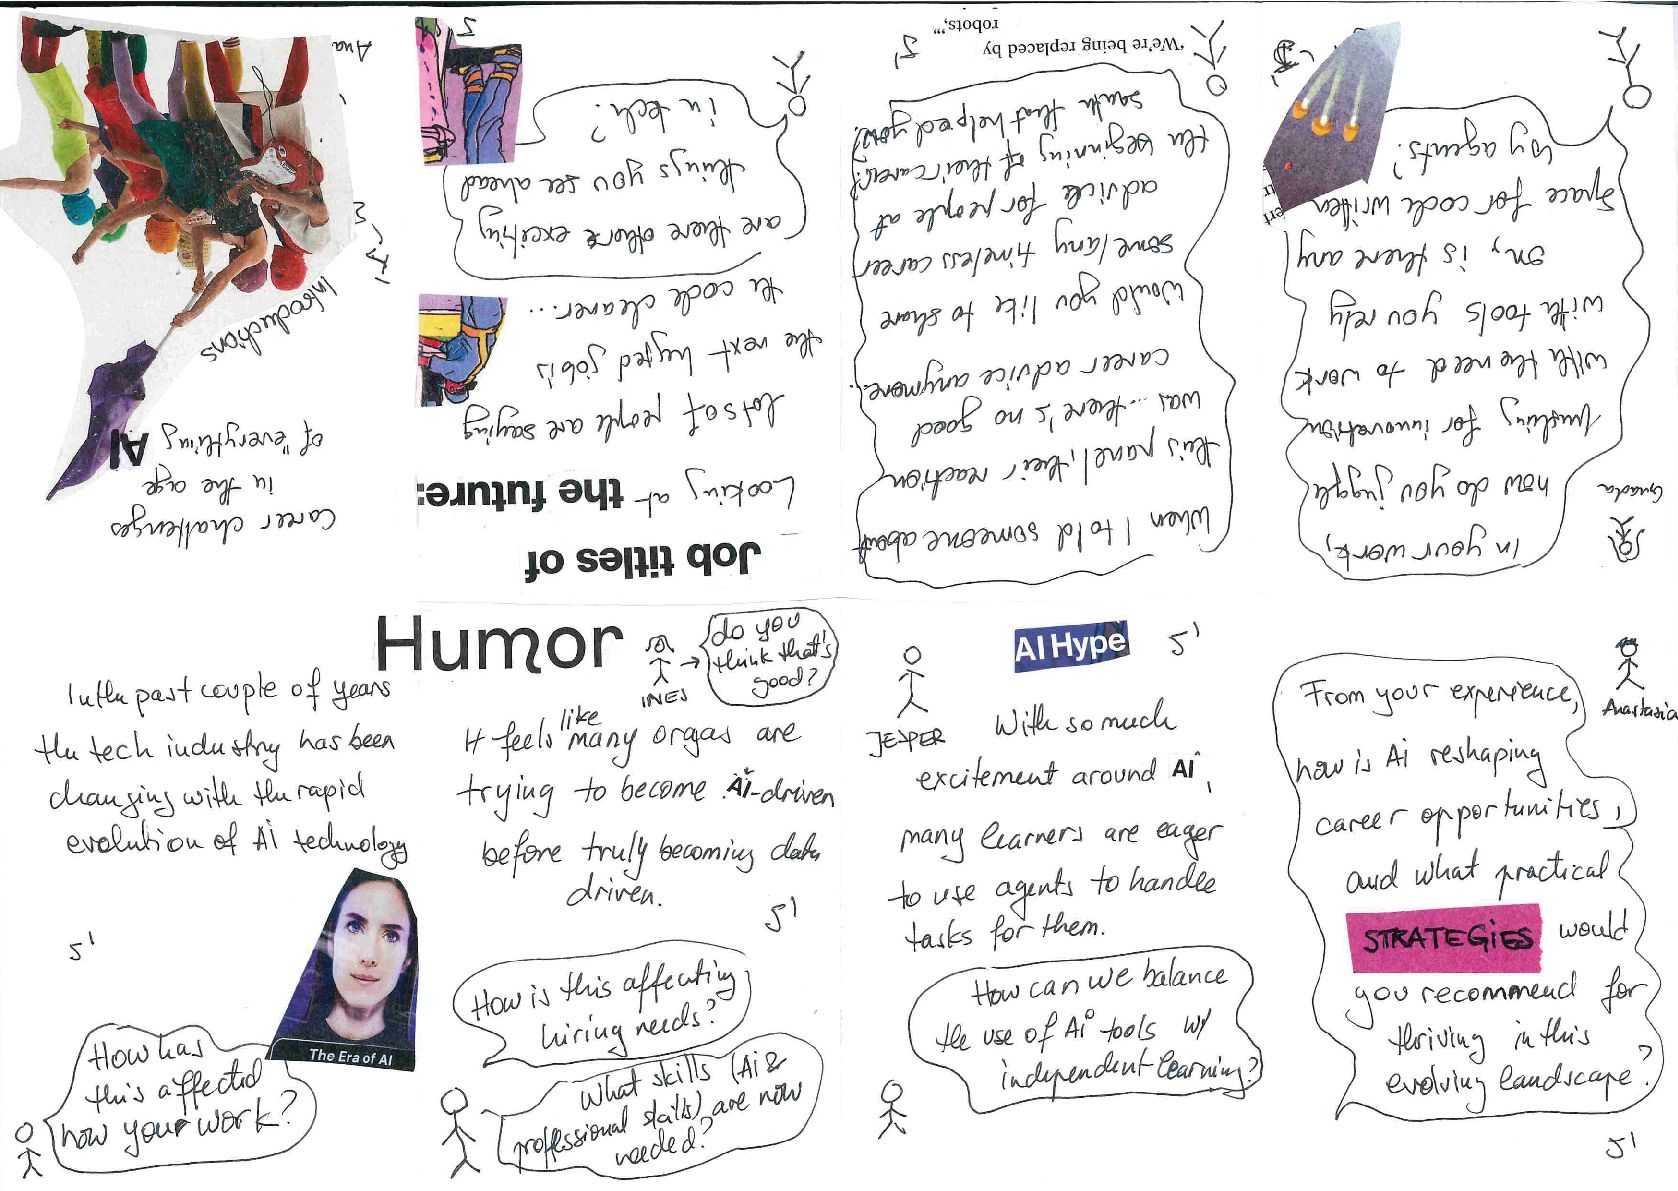 career challenges
in the age
of "everything AI
Introductions
5'
Ana
In the past couple of years
the tech industry has been
changing with the rapid
evolution of Ai technology
5'
The Era of AI
How has
this affected
how your work?
Humor
INES
do you
think that's
good?
It feels like many orgas are
trying to become Ai-driven
before truly becoming data
driven.
5'
How is this affecting
hiring needs?
What skills (Ai &
professional skills) are now
needed?
AI Hype
5'
JESPER
With so much
excitement around Ai,
many learners are eager
to use agents to handle
tasks for them.
How can we balance
the use of Ai tools w/
independent learning?
Anastasia
From your experience,
how is Ai reshaping
career opportunities,
and what practical
STRATEGiES would
you recommend for
thriving in this
evolving landscape?
5'
Guada
In your work,
how do you juggle
pushing for innovation
with the need to work
with tools you rely
on, is there any
space for code written
by agents?
5'
When I told someone about
this panel, their reaction
was ... there's no good
career advice anymore..
Would you like to share
some/any timeless career
advice for people at
the beginning of their career?
smth that helped you?
5'
"We're being replaced by
robots,"
Job titles of
Looking at the future:
Lots of people are saying
the next hyped job is
the code cleaner...
are there others exciting
things you see ahead
in tech?
5'